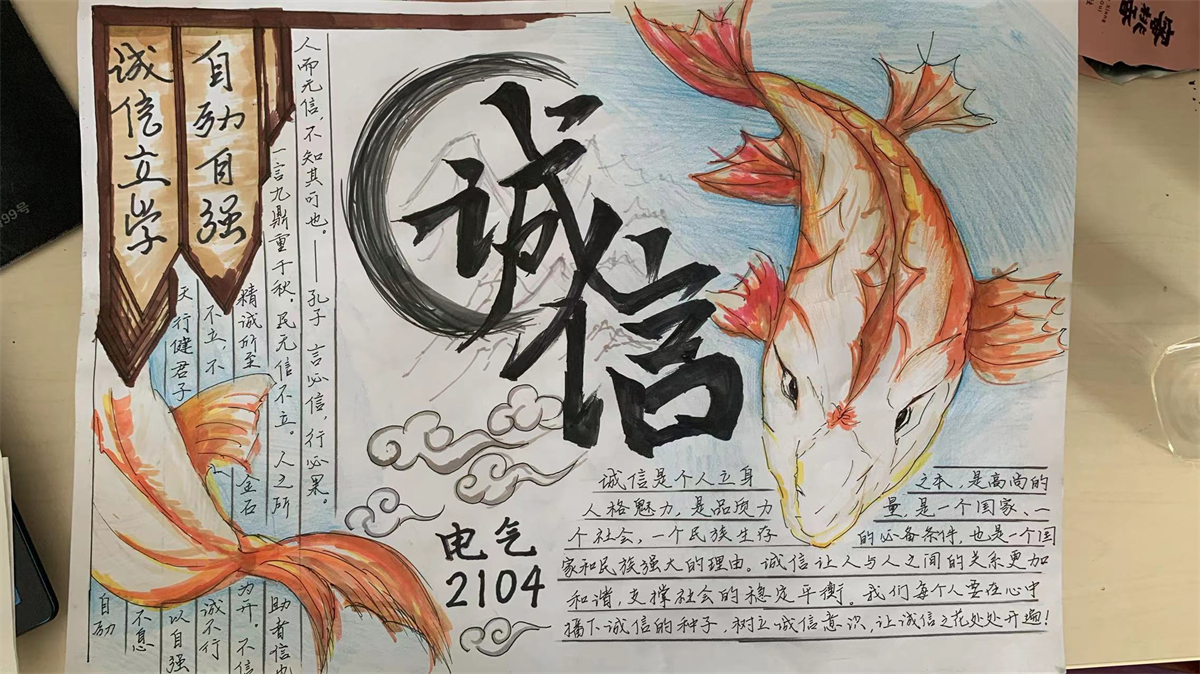 自励自强
诚信立学
人而无信，不知其可也。——孔子 言必信，行必果。
一言九鼎重千秋。民无信不立。人之所
助者信也
精诚所至
金石
为开。不信
不立，不
诚不行
天行健君子
以自强
不息
自励
诚信
电气
2104
诚信是个人立身之本，是高尚的
人格魅力，是品质力量，是一个国家、一
个社会，一个民族生存的必备条件，也是一个国
家和民族强大的理由。诚信让人与人之间的关系更加
和谐，支撑社会的稳定平衡。我们每个人要在心中
播下诚信的种子，树立诚信意识，让诚信之花处处开遍！
99号